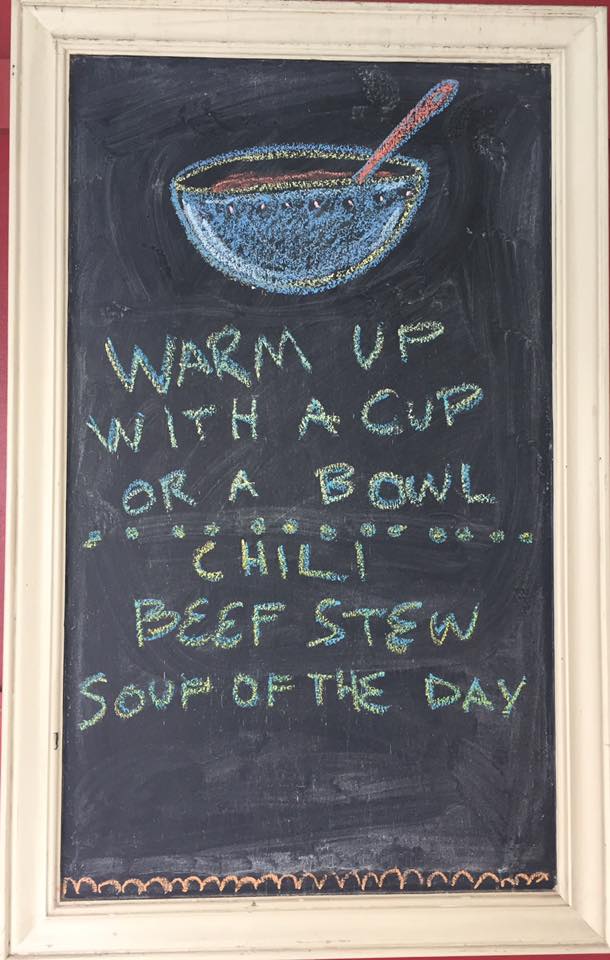 WARM UP
WITH A CUP
OR A BOWL
CHILI
BEEF STEW
SOUP OF THE DAY